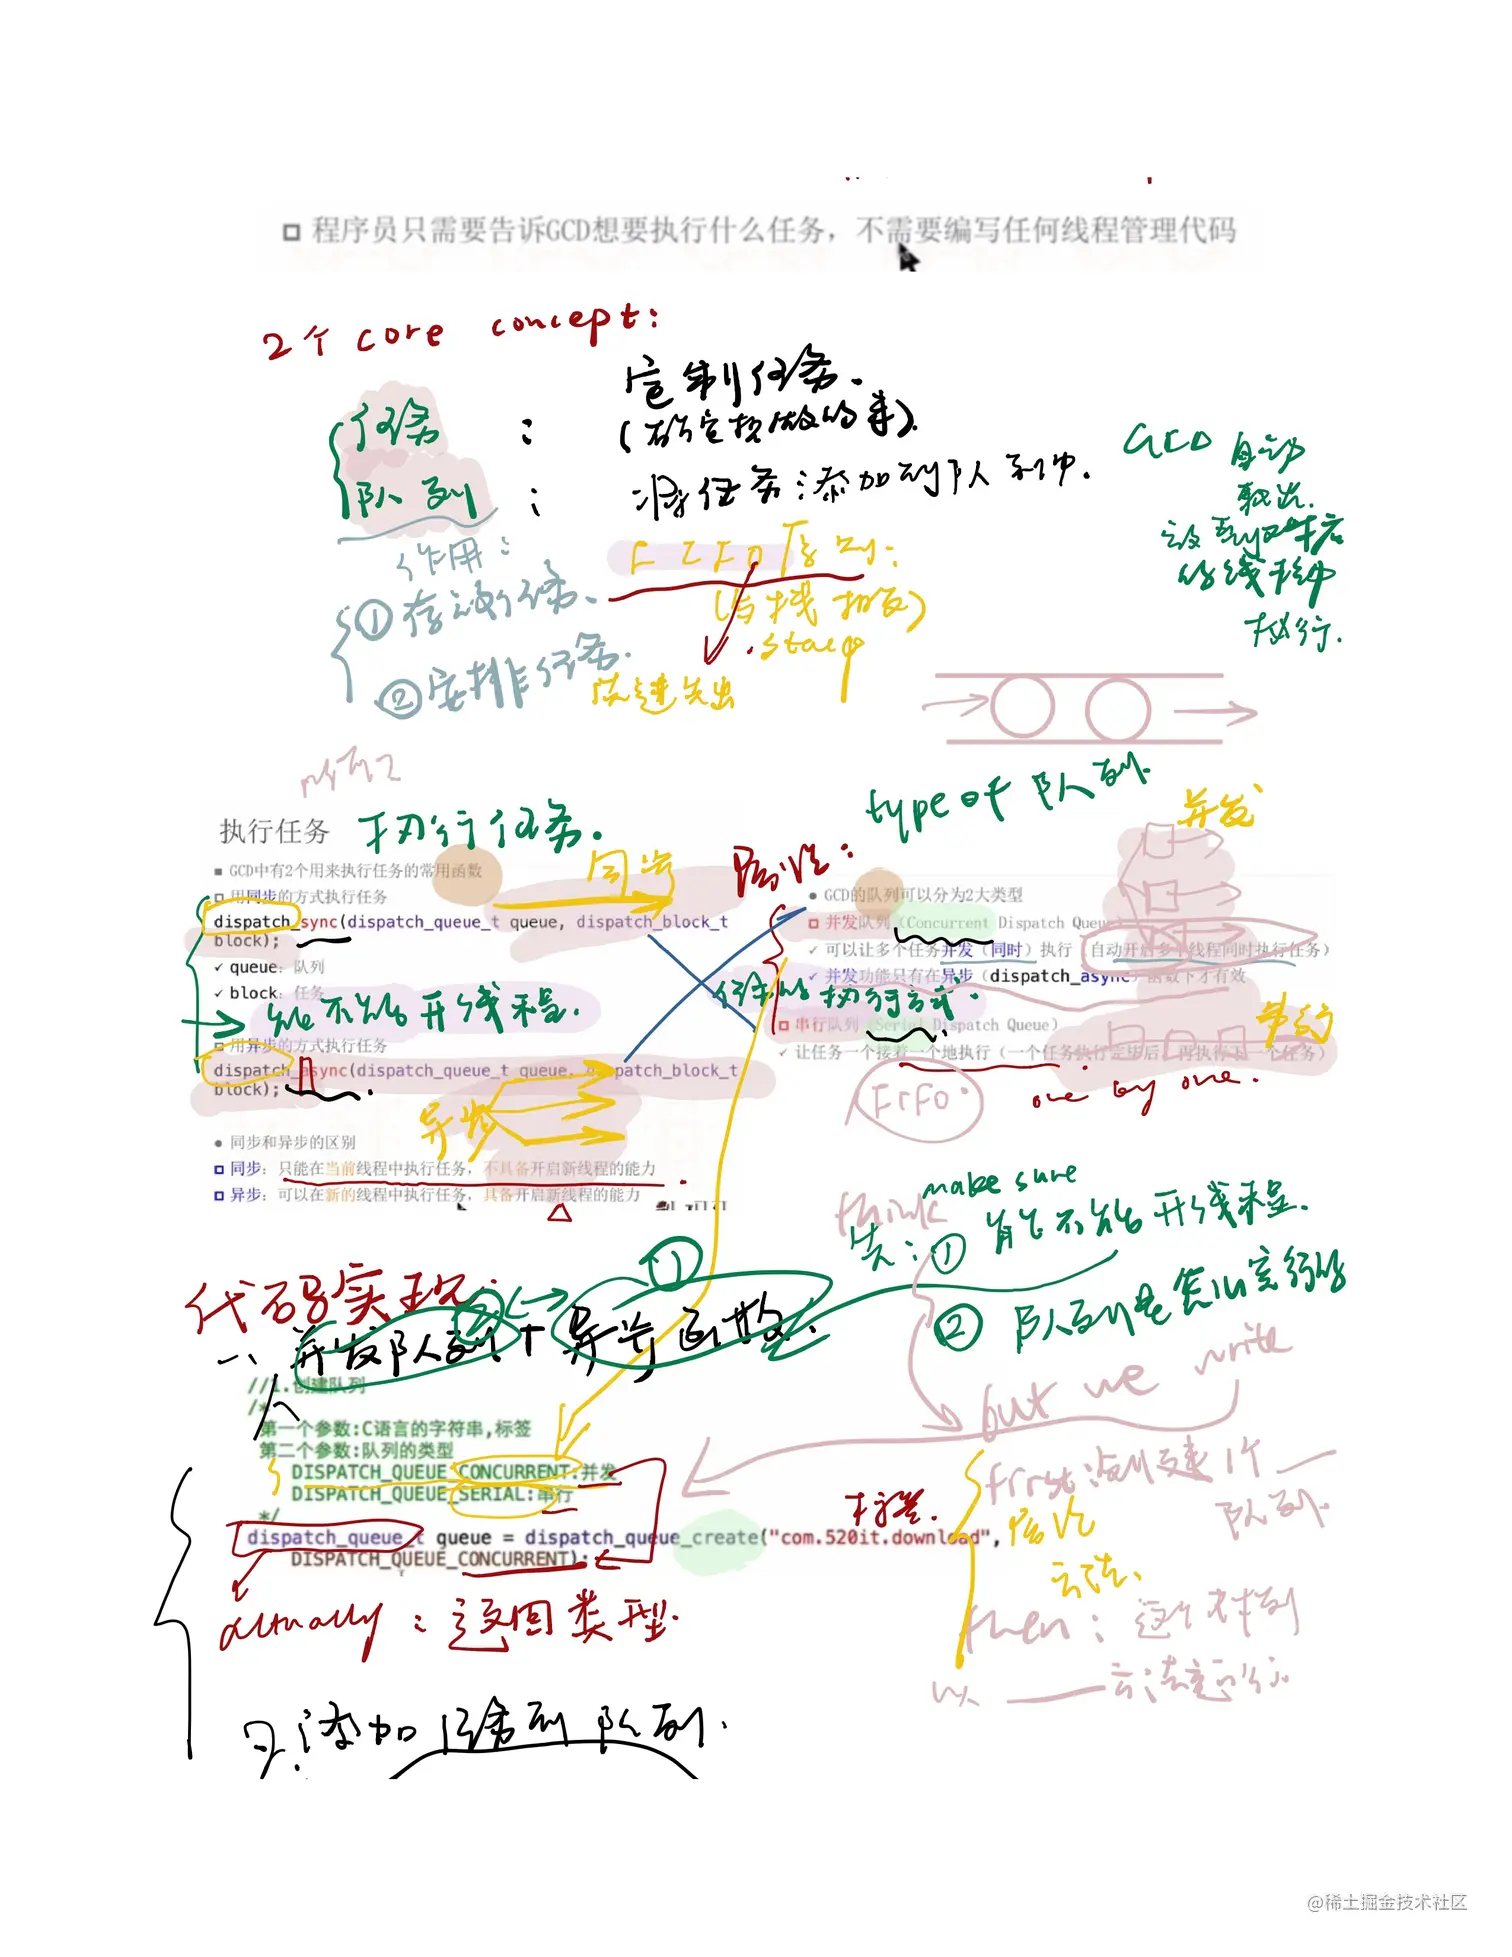 程序员只需要告诉GCD想要执行什么任务，不需要编写任何线程管理代码
2个 core concept:
任务 : 定制任务.
(确定想做的事).
队列 : 将任务添加到队列中.
GCD 自动
取出.
放到对应
的线程中
执行.
作用:
FIFO 原则:
(与栈相反)
①存放任务.
②安排任务.
先进先出
执行任务
执行任务.
GCD中有2个用来执行任务的常用函数
同步
用同步的方式执行任务
dispatch_sync(dispatch_queue_t queue, dispatch_block_t
block);
queue：队列
block：任务
能不能开线程.
用异步的方式执行任务
dispatch_async(dispatch_queue_t queue, dispatch_block_t
block);
异步
同步和异步的区别
同步：只能在当前线程中执行任务，不具备开启新线程的能力
异步：可以在新的线程中执行任务，具备开启新线程的能力
type of 队列.
并发
属性:
GCD的队列可以分为2大类型
并发队列（Concurrent Dispatch Queue
可以让多个任务并发（同时）执行（自动开启多个线程同时执行任务）
并发功能只有在异步（dispatch_async）函数下才有效
任务的执行方式.
串行队列（Serial Dispatch Queue）
串行
让任务一个接着一个地执行（一个任务执行完毕后，再执行下一个任务）
FIFO.
one by one.
think
make sure
先: ① 能不能开线程.
② 队列是怎么实行的
but we write
first: 创建1个
队列.
then:
代码实现:
一、并发队列 + 异步函数.
②
①
//1.创建队列
/*
第一个参数:C语言的字符串,标签
第二个参数:队列的类型
DISPATCH_QUEUE_CONCURRENT:并发
DISPATCH_QUEUE_SERIAL:串行
*/
标签.
dispatch_queue_t queue = dispatch_queue_create("com.520it.download",
DISPATCH_QUEUE_CONCURRENT);
actually: 返回类型.
2.添加任务到队列.
@稀土掘金技术社区